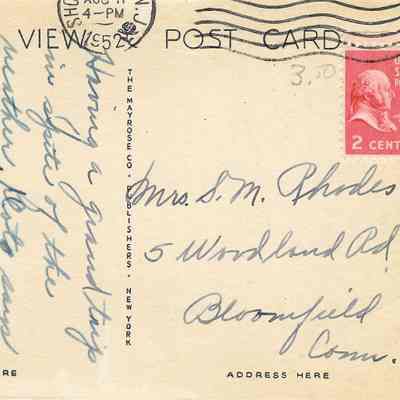 AUG 11
4-PM
1952
N.J.
VIEW POST CARD
3.00
2 CENT
Having a grand trip
in spite of the
weather. Lots
THE MAYROSE CO. PUBLISHERS. NEW YORK
Mrs. S. M. Rhodes
5 Woodland Rd
Bloomfield
Conn.
RE
ADDRESS HERE